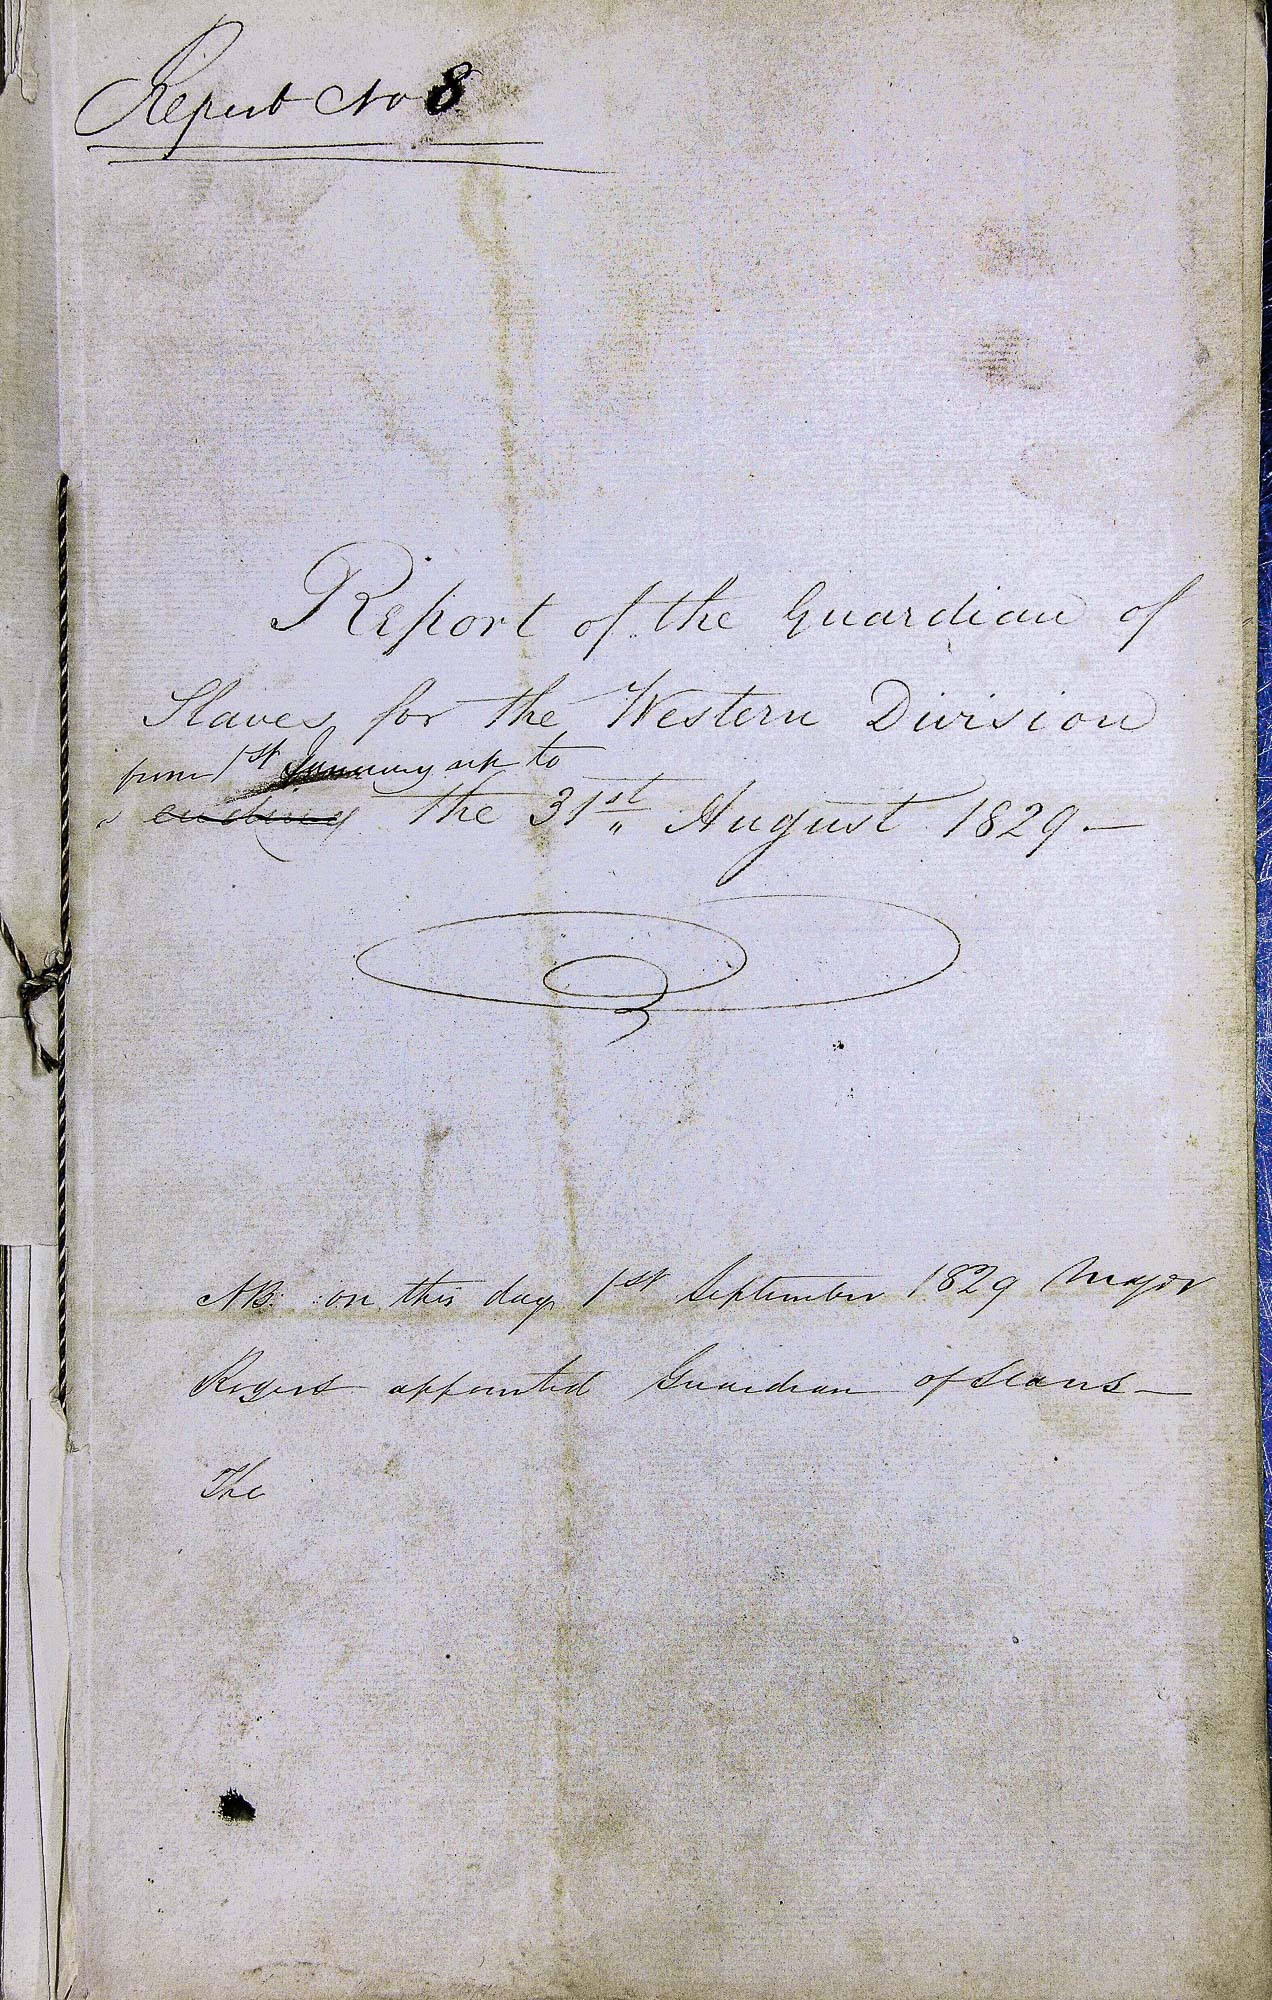 Report No 8
Report of the Guardian of
Slaves for the Western Division
from 1st January up to
ending the 31st August 1829 —
NB: on this day 1st September 1829 Major
Rogers appointed Guardian of Slaves —
The